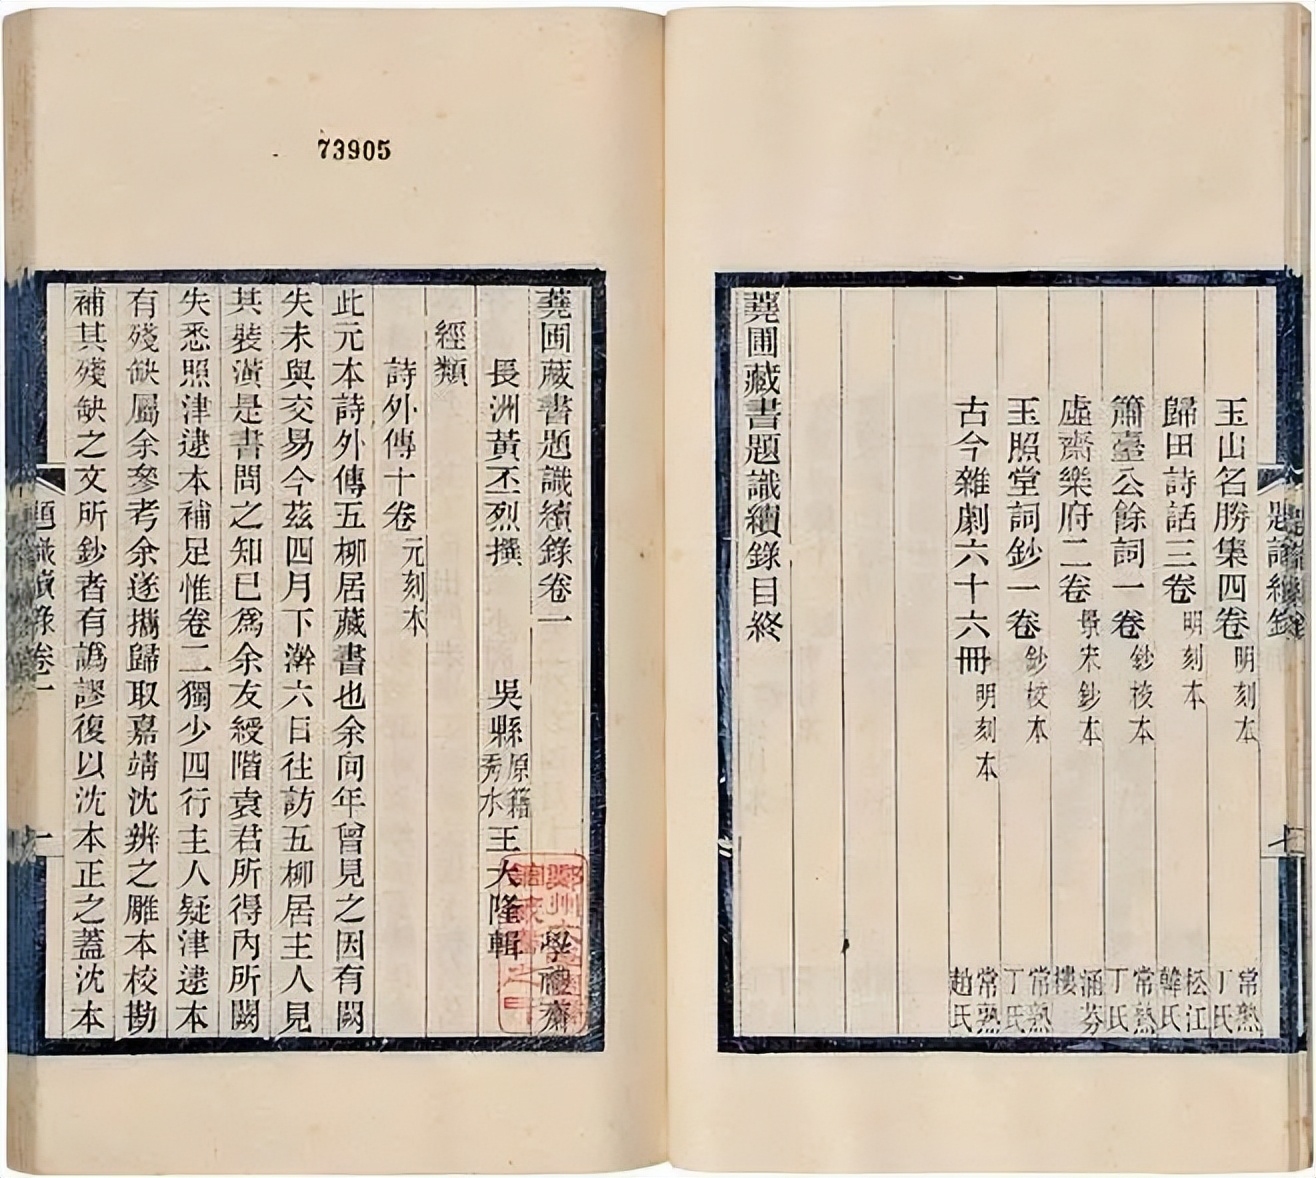 玉山名勝集四卷 明刻本 常熟丁氏
歸田詩話三卷 明刻本 松江韓氏
簫臺公餘詞一卷 鈔校本 常熟丁氏
虛齋樂府二卷 景宋鈔本 涵芬樓
玉照堂詞鈔一卷 鈔校本 常熟丁氏
古今雜劇六十六冊 明刻本 常熟趙氏
蕘圃藏書題識續錄目終
73905
蕘圃藏書題識續錄卷一 學禮齋
長洲黃丕烈撰 吳縣原籍秀水王大隆輯
經類
詩外傳十卷 元刻本
此元本詩外傳五柳居藏書也余向年曾見之因有闕
失未與交易今茲四月下澣六日往訪五柳居主人見
其裝潢是書問之知已為余友綬階袁君所得內所闕
失悉照津逮本補足惟卷二獨少四行主人疑津逮本
有殘缺屬余參考余遂攜歸取嘉靖沈辨之雕本校勘
補其殘缺之文所鈔者有譌謬復以沈本正之蓋沈本
題識續錄卷一
一